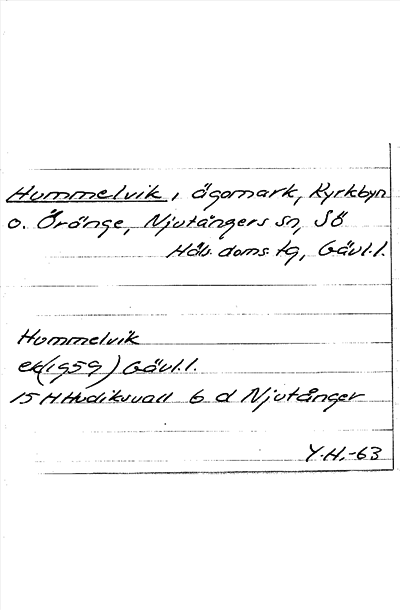 Hummelvik, ägomark, Kyrkbyn
o. Öränge, Njutångers sn, Sö
Häls. doms. tg, Gävl.l.
Hummelvik
ek(1959) Gävl.l.
15 H Hudiksvall 6 d Njutånger
Y.H.-63